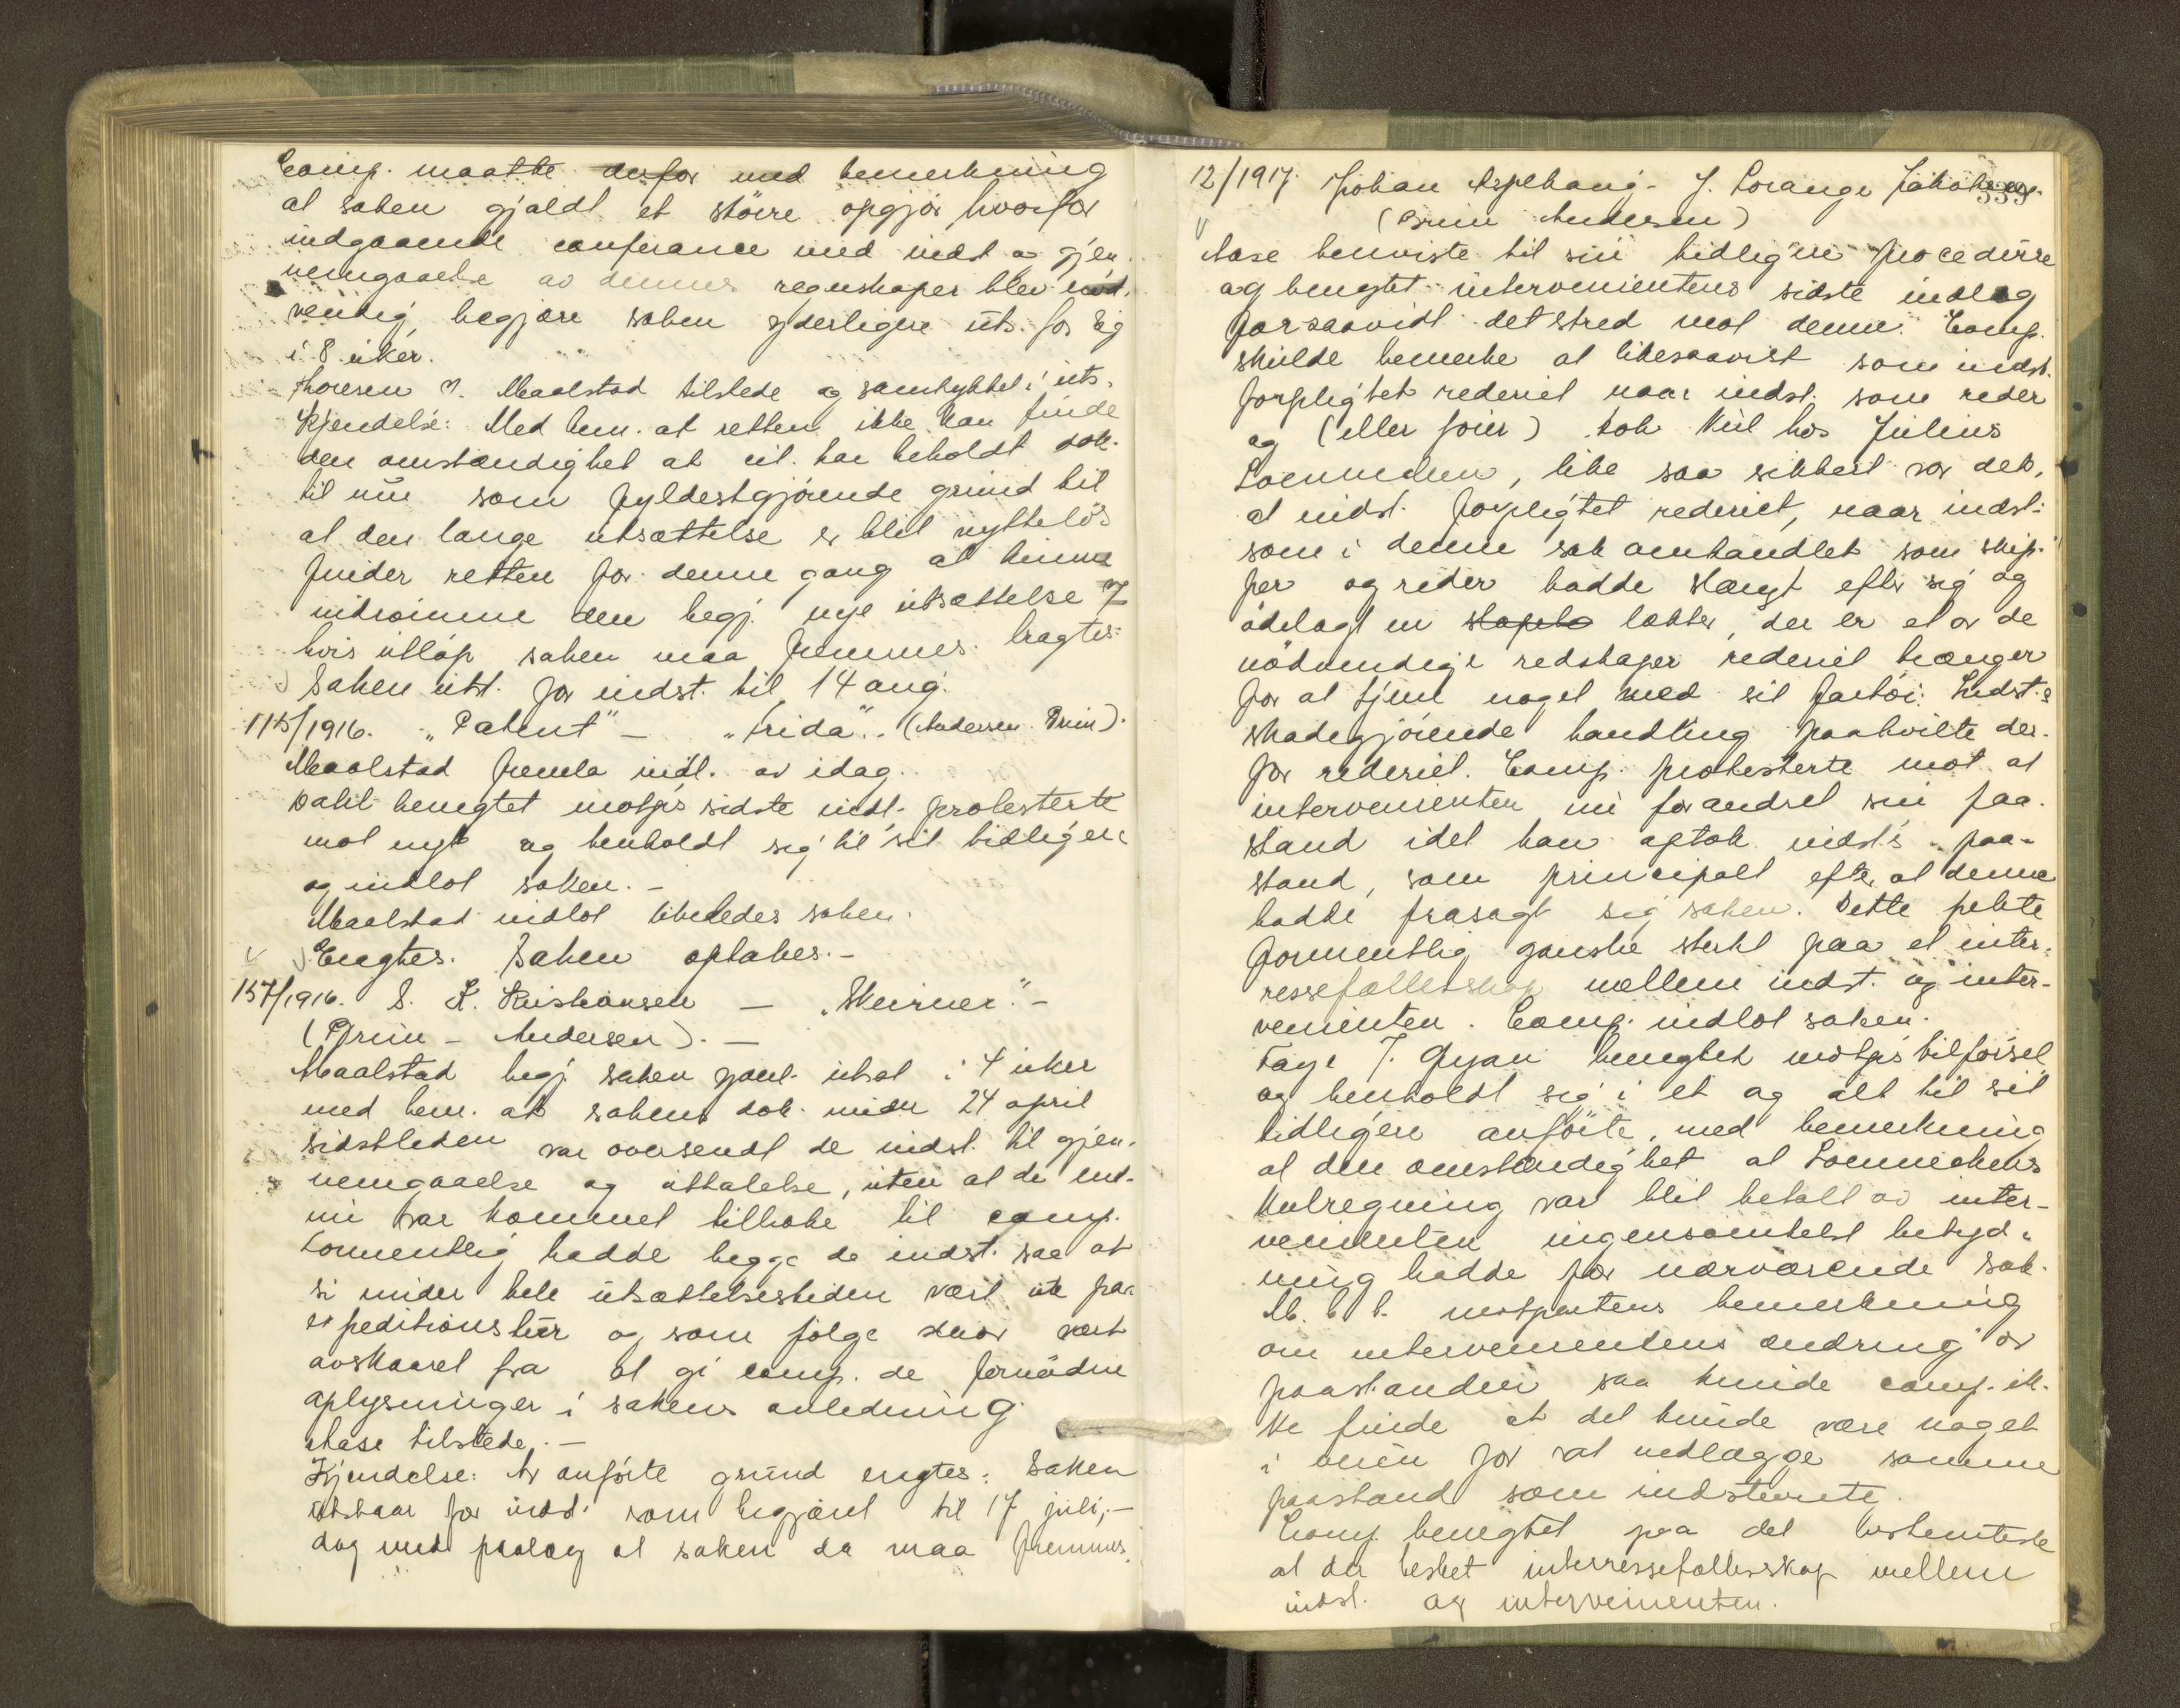 Comp. maatte anfør med bemerkning
at saken gjaldt et større opgjør hvorfor
indgaaende conferance med indst og gjen-
nemgaaelse av dennes regnskaper blev nød-
vendig, begjære saken yderligere uts. for sig
i 8 uker.
Thoresen f. Maalstad tilstede og samtykket i uts.
Kjendelse: Med bem. at retten ikke kan finde
den omstændighet at cit. har beholdt dok.
til nu som fyldestgjørende grund til
at den lange utsættelse er blit nytteløs
finder retten for denne gang at kunne
indrømme den begj. nye utsættelse
hvis utløp saken maa fremmes. Eragtes:
Saken uts. for indst. til 14 aug.
115/1916. "Patent" - "Frida". (Andersen. Bruun).
Maalstad fremla indl. av idag.
Dahl benegtet motp's sidste indl. protesterte
mot nyt og henholdt sig til sit tidligere
og indlot saken. -
Maalstad indlot likeledes saken.
Eragtes. Saken optakes. -
157/1916. S. K. Kristiansen - "Skirner". -
(Bruun - Andersen). -
Maalstad begj. saken ydul. utsat i 4 uker
med bem. at sakens dok. under 24 april
sidstleden var oversendt de indst. til gjen-
nemgaaelse og uttalelse, uten at de end-
nu var kommet tilbake til comp.
Formentlig hadde begge de indst. saa at
si under hele utsættelsestiden vært ute paa
expeditionstur og som følge derav vært
avskaaret fra at gi comp. de fornødne
oplysninger i sakens anledning.
Aase tilstede. -
Kjendelse: Av anførte grund eragtes: Saken
utstaar for indst. som begjæret til 17 juli, -
dog med paalæg at saken da maa fremmes.
12/1917. Johan Asplhaug - J. Lorange Jakobsen.
339.
(Bruun Andersen)
Aase henviste til sin tidligere procedure
og benegtet intervenientens sidste indlæg
forsaavidt det stred mot denne. Comp.
skulde bemerke at likesaavist som indst.
forpligtet rederiet naar indst. som reder
og (eller foier) tok kul hos Julius
Loennechen, like saa sikkert var det,
at indst. forpligtet rederiet, naar indst.
som i denne sak omhandlet som skip-
per og reder hadde slængt efter sig og
ødelagt en støpt lækter, der er et av de
nødvendige redskaper rederiet trænger
for at tjene noget med sit fartøi. Indst.s
skadegjørende handling paahvilte der-
for rederiet. Comp. protesterte mot at
intervenienten nu forandret sin paa-
stand idet han optok indst's paa-
stand, som principalt efter at denne
hadde frasagt sig saken. Dette pekte
formentlig ganske sterkt paa et inter-
ressefællesskap mellem indst. og inter-
venienten. Comp. indlot saken.
Faye f. Gran benegtet motp's tilførsel
og henholdt sig i et og alt til sit
tidligere anførte, med bemerkning
at den omstændighet at Loennechens
kulregning var blit betalt av inter-
venienten ingensomhelst betyd-
ning hadde for nærværende sak.
M. h. t. motpartens bemerkning
om intervenientens ændring av
paastanden saa kunde comp. ik-
ke finde at det kunde være noget
i veien for at nedlægge samme
paastand som indstevnte.
Comp. benegtet paa det bestemteste
at der bestet interressefællesskap mellem
indst. og intervenienten.